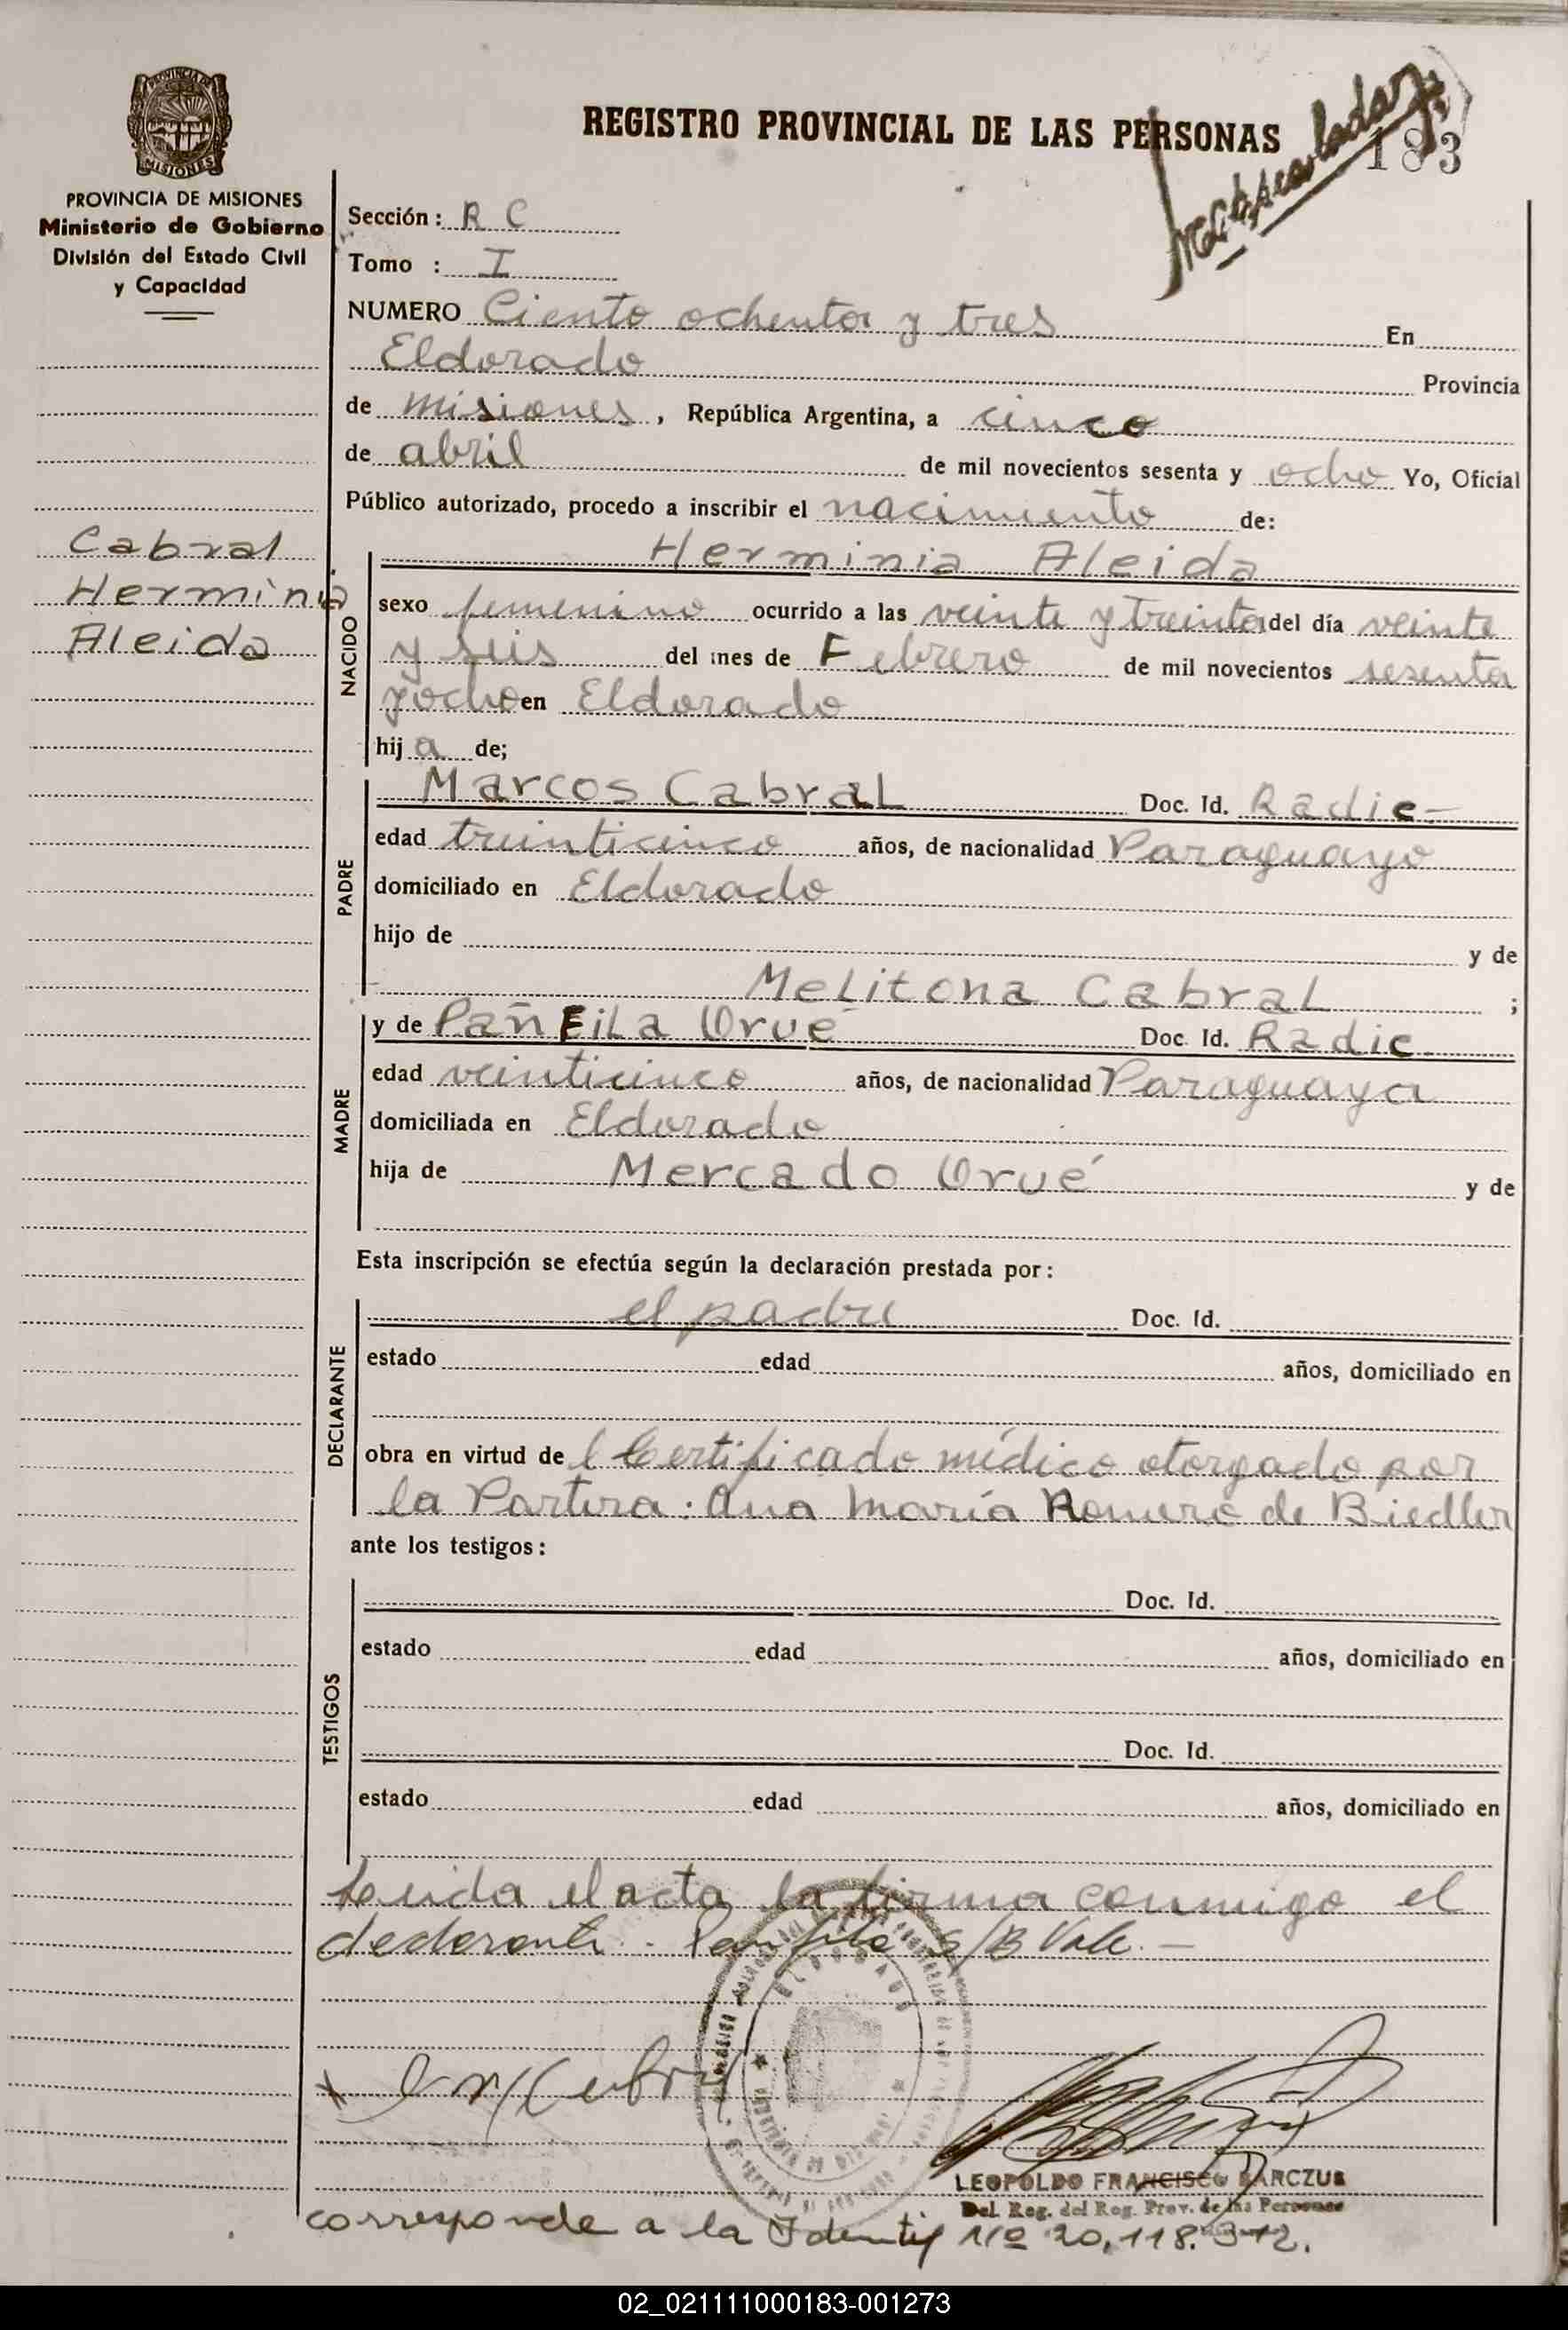 REGISTRO PROVINCIAL DE LAS PERSONAS
183
MISIONES
PROVINCIA DE MISIONES
Ministerio de Gobierno
División del Estado Civil
y Capacidad
Sección: R C
Tomo : I
NUMERO Ciento ochenta y tres En
Eldorado Provincia
de Misiones, República Argentina, a cinco
de abril de mil novecientos sesenta y ocho Yo, Oficial
Público autorizado, procedo a inscribir el nacimiento de:
Cabral
Herminia
Aleida
NACIDO
Herminia Aleida
sexo femenino ocurrido a las veinte y treinta del día veinte
y seis del mes de Febrero de mil novecientos sesenta
y ocho en Eldorado
hij a de;
PADRE
Marcos Cabral Doc. Id. Radic-
edad treinticinco años, de nacionalidad Paraguayo
domiciliado en Eldorado
hijo de y de
Melitona Cabral ;
MADRE
y de Orué Doc. Id. Radic.
edad veinticinco años, de nacionalidad Paraguaya
domiciliada en Eldorado
hija de Mercado Orué y de
Esta inscripción se efectúa según la declaración prestada por:
DECLARANTE
el padre Doc. Id.
estado edad años, domiciliado en
obra en virtud de l Certificado médico otorgado por
la Partera: Ana María Romero de Biedler
ante los testigos:
TESTIGOS
Doc. Id.
estado edad años, domiciliado en
Doc. Id.
estado edad años, domiciliado en
Leida el acta la firma conmigo el
declarante. Panfila S/B Vale.-
ELDORADO
LEOPOLDO FRANCISCO BARCZUK
Del. Reg. del Reg. Prov. de las Personas
corresponde a la Identif Nº 20,118.312.
02_021111000183-001273